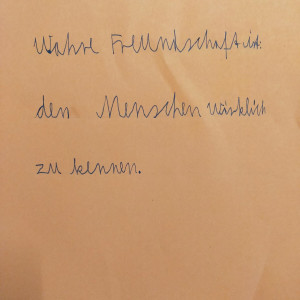 Wahre Freundschaft ist:
den Menschen wirklich
zu kennen.